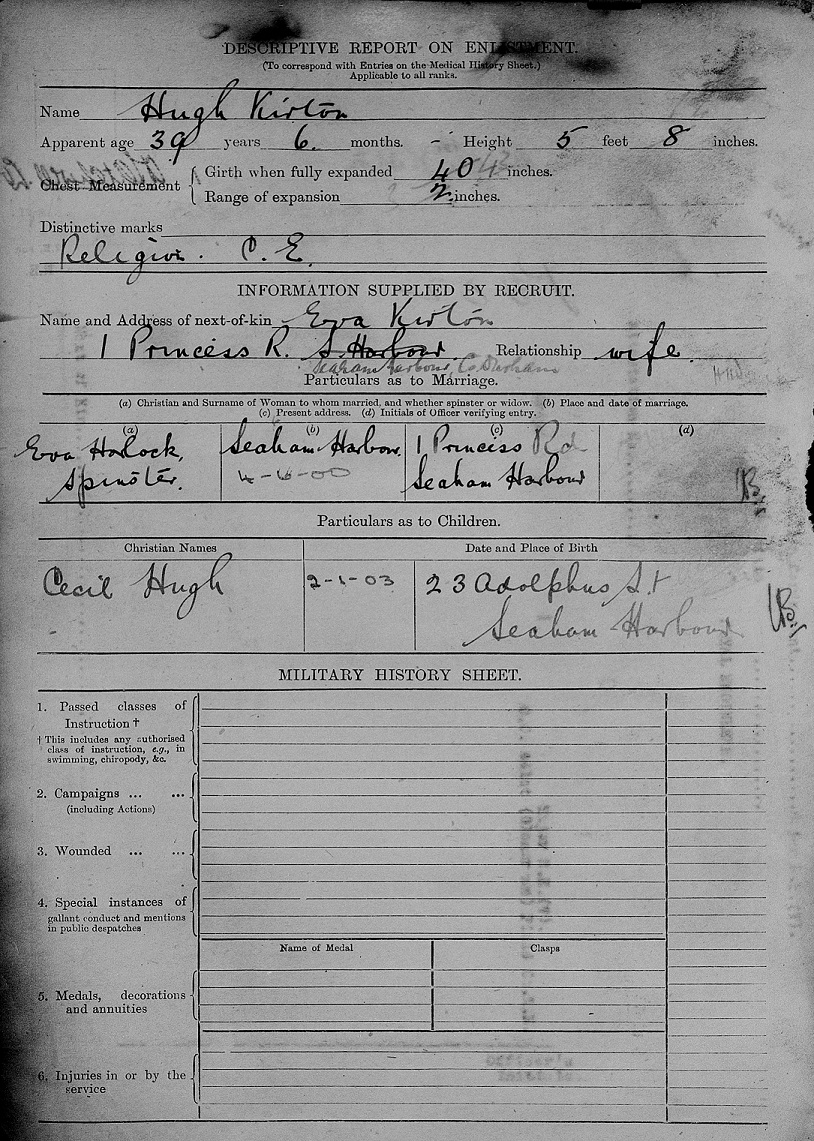 DESCRIPTIVE REPORT ON ENLISTMENT.
(To correspond with Entries on the Medical History Sheet.)
Applicable to all ranks.
Name Hugh Kirton
Apparent age 39 years 6. months. - Height 5 feet 8 inches.
Chest Measurement { Girth when fully expanded 40 inches.
Range of expansion 2 inches.
Distinctive marks
Religion. C. E.
INFORMATION SUPPLIED BY RECRUIT.
Name and Address of next-of-kin Eva Kirton
1 Princess R. S. Harbour. Relationship wife.
Seaham Harbour, Co. Durham
Particulars as to Marriage.
(a) Christian and Surname of Woman to whom married, and whether spinster or widow. (b) Place and date of marriage.
(c) Present address. (d) Initials of Officer verifying entry.
(a) (b) (c) (d)
Eva Horlock, Seaham Harbour. 1 Princess Rd
Spinster. 4-6-00 Seaham Harbour
Particulars as to Children.
Christian Names Date and Place of Birth
Cecil Hugh 2-1-03 23 Adolphus St
Seaham Harbour
MILITARY HISTORY SHEET.
1. Passed classes of
Instruction †
† This includes any authorised
class of instruction, e.g., in
swimming, chiropody, &c.
2. Campaigns ... ...
(including Actions)
3. Wounded ... ...
4. Special instances of
gallant conduct and mentions
in public despatches
Name of Medal Clasps
5. Medals, decorations
and annuities
6. Injuries in or by the
service